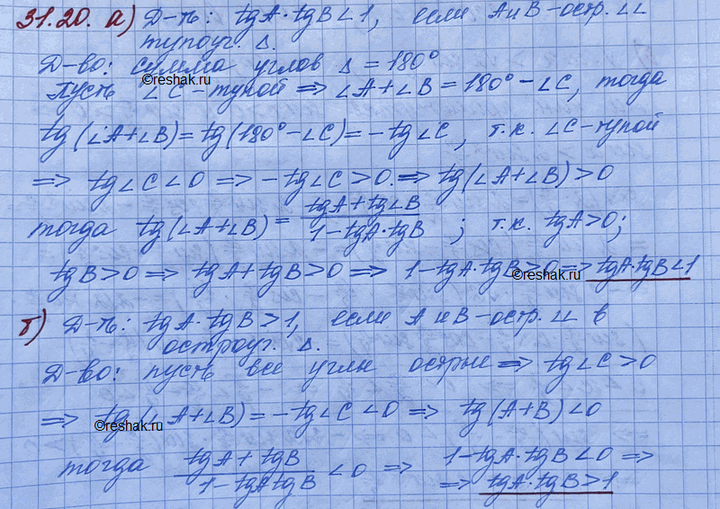 31.20. а) Д-ть: tgA·tgB<1, если A и B-остр. ∠∠
тупоуг. Δ.
Д-во: сумма углов Δ = 180°
©reshak.ru
Пусть ∠C-тупой ⇒ ∠A+∠B = 180°-∠C, тогда
tg(∠A+∠B)=tg(180°-∠C)=-tg∠C, т.к. ∠C-тупой
⇒ tg∠C<0 ⇒ -tg∠C>0. ⇒ tg(∠A+∠B)>0
тогда tg(∠A+∠B) = (tgA+tg∠B)/(1-tgA·tgB) ; т.к. tgA>0;
tgB>0 ⇒ tgA+tgB>0 ⇒ 1-tgA·tgB>0 ⇒ tgA·tgB<1
©reshak.ru
б) Д-ть: tgA·tgB>1, если A и B-остр. ∠∠ в
остроуг. Δ.
Д-во: пусть все углы острые ⇒ tg∠C>0
⇒ tg(∠A+∠B)=-tg∠C<0 ⇒ tg(A+B)<0
©reshak.ru
тогда (tgA+tgB)/(1-tgAtgB) <0 ⇒ 1-tgA·tgB<0 ⇒
⇒ tgA·tgB>1